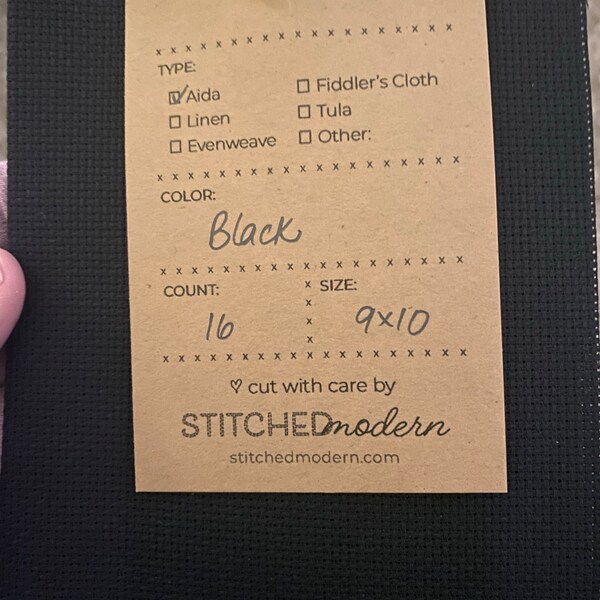 x x x x x x x x x x x x x x x x x x x
TYPE:
☑ Aida ☐ Fiddler's Cloth
☐ Linen ☐ Tula
☐ Evenweave ☐ Other:
x x x x x x x x x x x x x x x x x x x
COLOR:
Black
x x x x x x x x x x x x x x x x x x x
COUNT: x SIZE:
x
16 x 9x10
x
x x x x x x x x x x x x x x x x x x x
♡ cut with care by
STITCHEDmodern
stitchedmodern.com